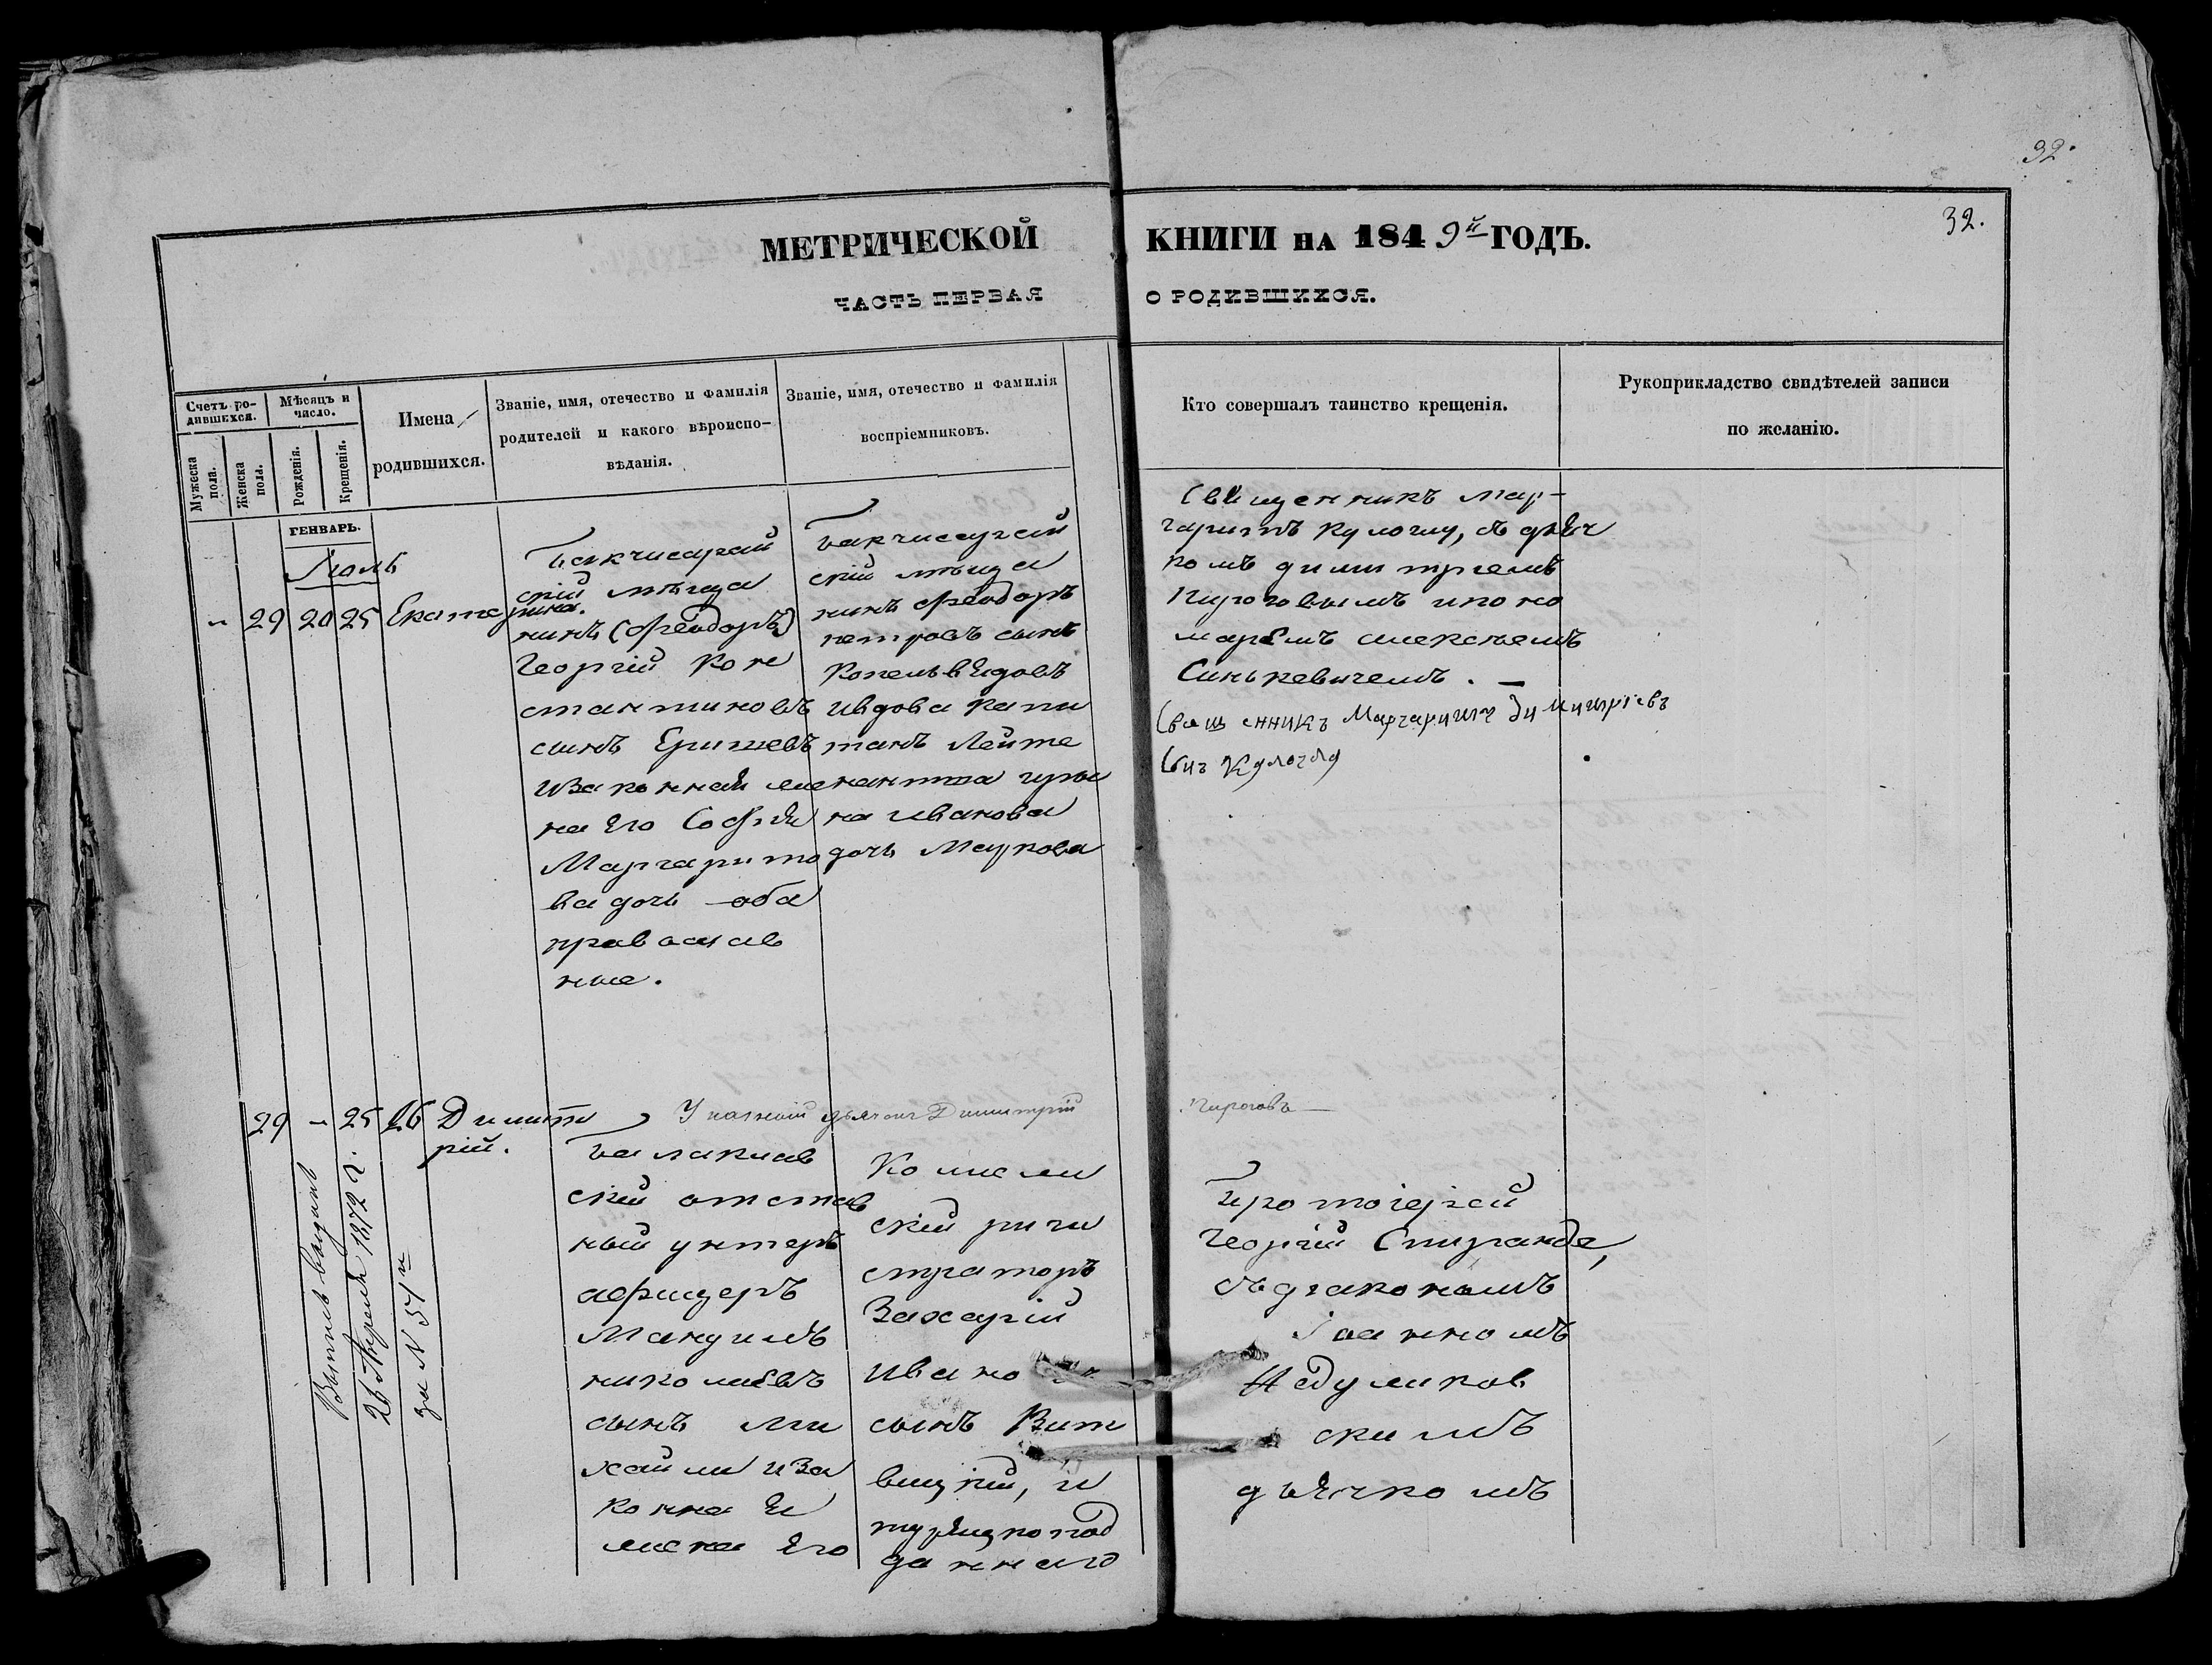 32.
МЕТРИЧЕСКОЙ КНИГИ НА 1849й ГОДЪ.
32.
ЧАСТЬ ПЕРВАЯ О РОДИВШИХСЯ.
Счетъ ро-
дившихся.
Мужеска пола.
Женска пола.
Мѣсяцъ и число.
Рожденія.
Крещенія.
Имена
родившихся.
Званіе, имя, отечество и фамилія
родителей и какого вѣроиспо-
вѣданія.
Званіе, имя, отечество и фамилія
воспріемниковъ.
Кто совершалъ таинство крещенія.
Рукоприкладство свидѣтелей записи
по желанію.
ГЕНВАРЬ.
Іюль
" 29 20 25 Екатерина.
Бакчисарай
скій мѣща
нинъ (Феодоръ)
Георгій Кон
стантиновъ
сынъ
изаконная же
на его Софія
Маргарито
ва дочь – оба
православ
ные.
Бакчисарай
скій мѣща
нинъ Феодоръ
петровъ сынъ
ивдова капи
танъ Лейте
нанта
на Иванова
дочь Маркова
Священникъ Мар-
гаритъ Кулоглу, съ дьяч
комъ димитріемъ
Пироговымъ ипоно
маремъ алексѣемъ
Синькевичемъ. –
Священникъ Маргаритъ Димитріевъ
Сынъ Кулоглу
29 – 25 26 Димит
рій.
Указный дьячокъ Димитрій Пироговъ –
Балаклав
скій отстав
ный унтеръ
афицеръ
Мануилъ
николаевъ
сынъ Ми
хайли иза
конная
жена его
Колле
скій риги
страторъ
Захарій
Ивано
сынъ Вит
вицкій, и
турецкопод
даннаго
Протоіерей
Георгій Спиранде,
съдіакономъ
Іоанномъ
Недуликов
скимъ
дьячкомъ
Выпись выдана
26 Апреля 1872 г.
за N 57м